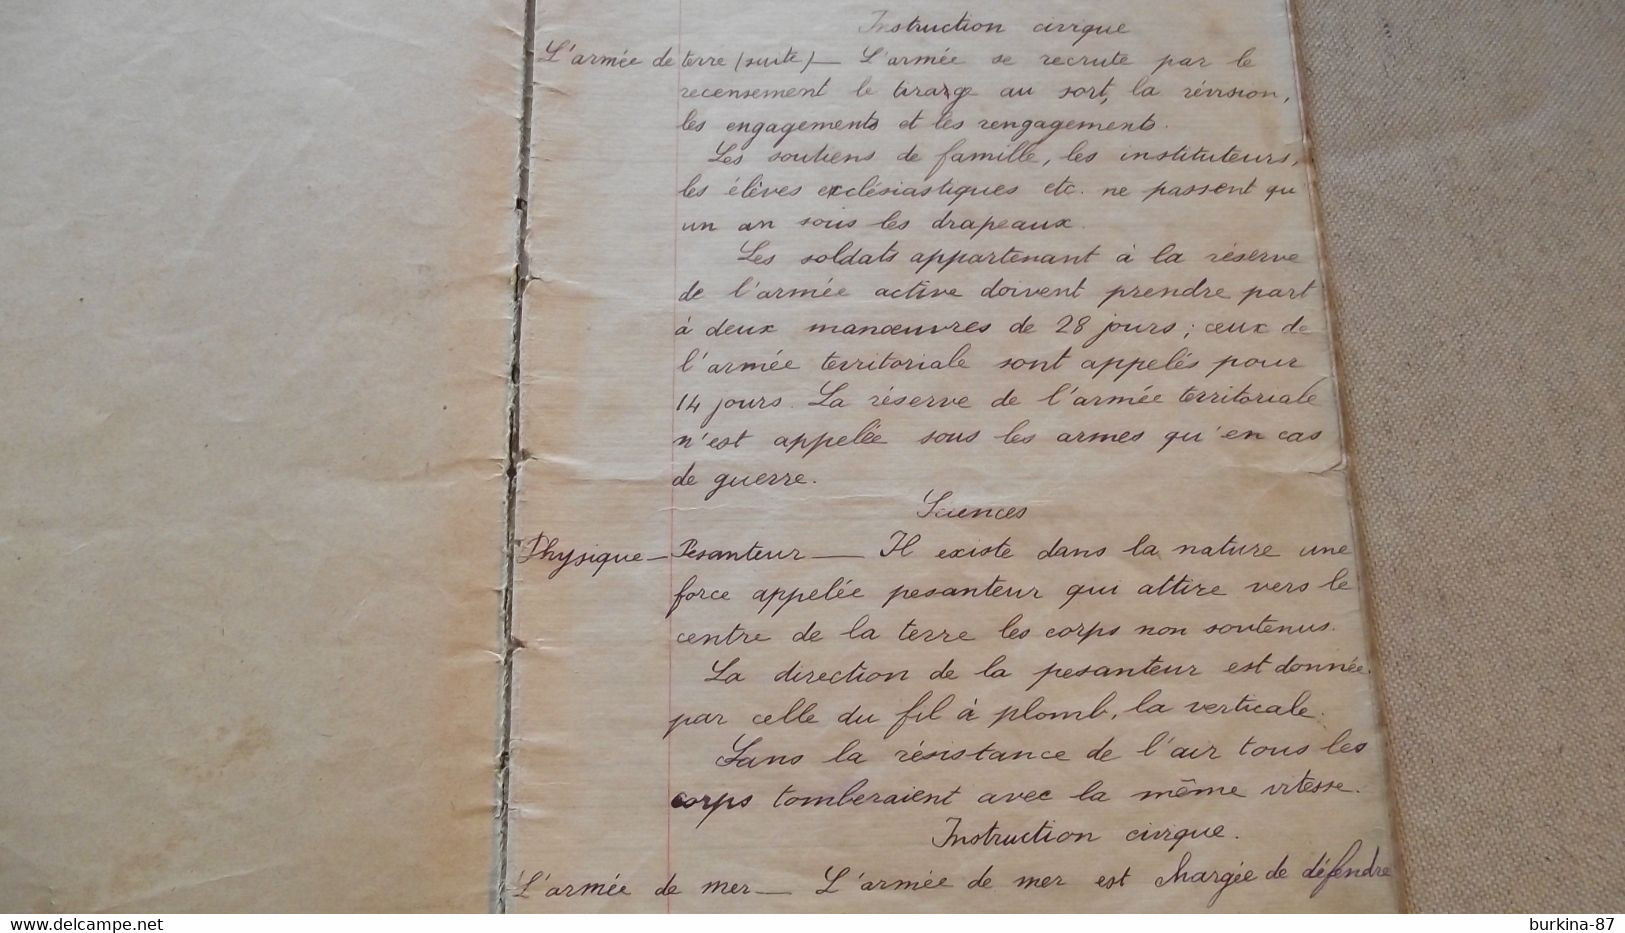 Instruction civique
L'armée de terre (suite) — L'armée se recrute par le
recensement le tirage au sort, la révision,
les engagements et les rengagements.
Les soutiens de famille, les instituteurs,
les élèves ecclésiastiques etc. ne passent qu'
un an sous les drapeaux.
Les soldats appartenant à la réserve
de l'armée active doivent prendre part
à deux manœuvres de 28 jours ; ceux de
l'armée territoriale sont appelés pour
14 jours. La réserve de l'armée territoriale
n'est appelée sous les armes qu'en cas
de guerre.
Sciences
Physique — Pesanteur — Il existe dans la nature une
force appelée pesanteur qui attire vers le
centre de la terre les corps non soutenus.
La direction de la pesanteur est donnée
par celle du fil à plomb, la verticale.
Sans la résistance de l'air tous les
corps tomberaient avec la même vitesse.
Instruction civique.
L'armée de mer — L'armée de mer est chargée de défendre
burkina-87